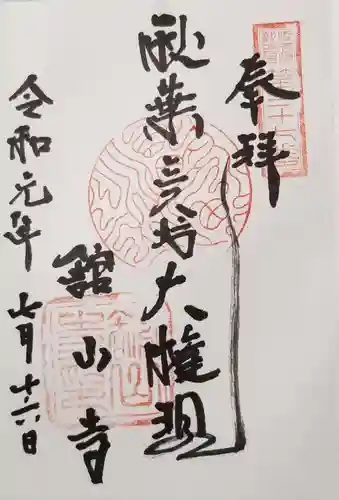 奉拝
秋葉三尺坊大権現
舘山寺
令和元年七月十六日